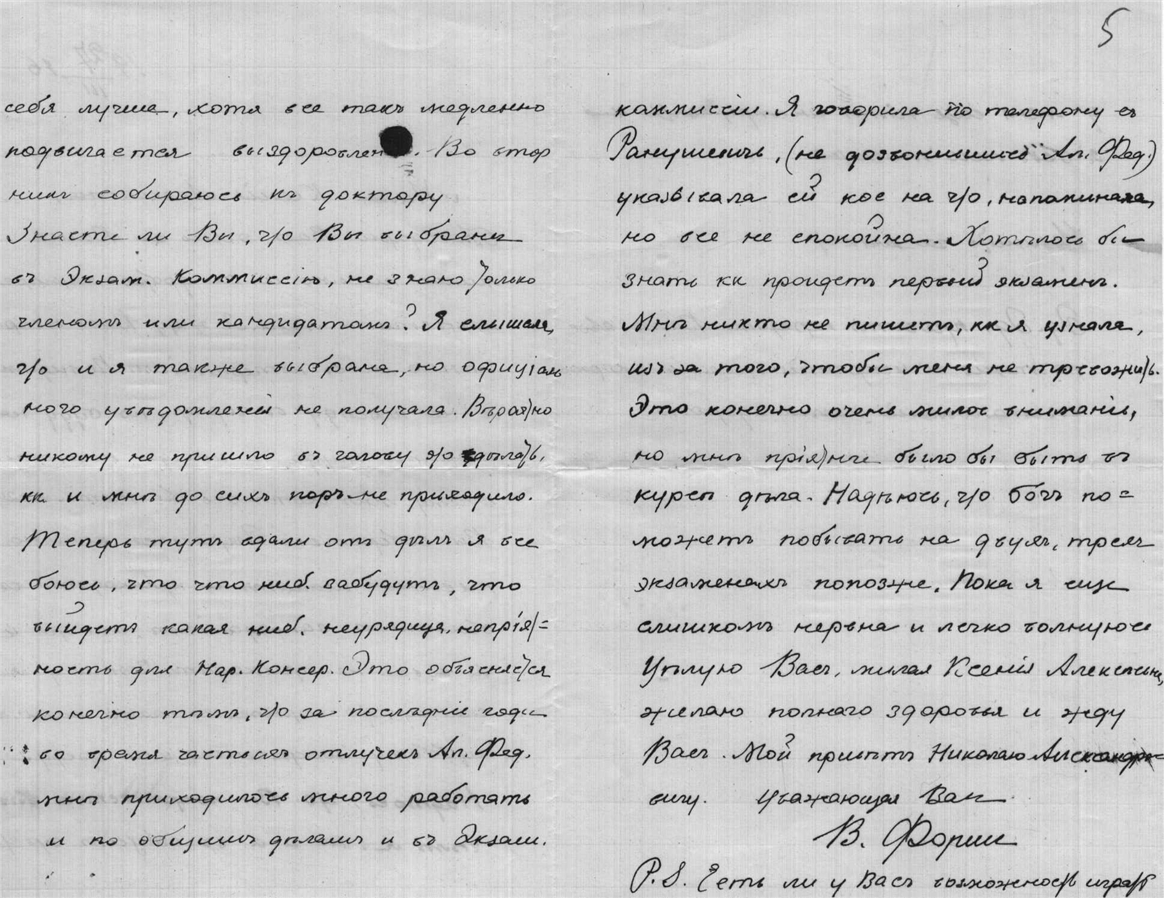 5
себя лучше, хотя все такъ медленно
подвигается выздоровлен. Во втор
никъ собираюсь къ доктору
Знаете ли Вы, ч/о Вы выбраны
въ Экзам. Коммиссію, не знаю /олько
членомъ или кандидатомъ? Я слышала,
ч/о и я также выбрана, но офиціаль
ного увѣдомленія не получала. Вѣроя/но
никому не пришло въ голову э/о сдѣла/ь,
кк и мнѣ до сихъ поръ не приходило.
Теперь тутъ вдали отъ дѣлъ я все
боюсь, что что ниб. забудутъ, что
выйдетъ какая ниб. неурядица, непрія/=
ность для Нар. Консер. Это объясняе/ся
конечно тѣмъ, ч/о за послѣдніе годы
во время частыхъ отлучекъ Ал. Фед.
мнѣ приходилось много работать
и по общимъ дѣламъ и въ Экзам.
коммиссіи. Я говорила по телефону съ
(не дозвонившись Ал. Фед.)
указывала ей кое на ч/о, напоминала,
но все не спокойна. Хотѣлось бы
знать кк пройдетъ первый экзаменъ.
Мнѣ никто не пишетъ, кк я узнала,
изъ за того, чтобы меня не тревожи/ь.
Это конечно очень милое вниманіе,
но мнѣ прія/нѣе было бы быть въ
курсѣ дѣла. Надѣюсь, ч/о богъ по=
можетъ побывать на двухъ, трехъ
экзаменахъ попозже. Пока я еще
слишкомъ нервна и легко волнуюсь
Цѣлую Васъ, милая Ксенія Алексѣевна,
желаю полнаго здоровья и жду
Васъ. Мой привѣтъ Николаю Александро=
вичу. Уважающая Васъ
В. Форш
P.S. Есть ли у Васъ возможность играть